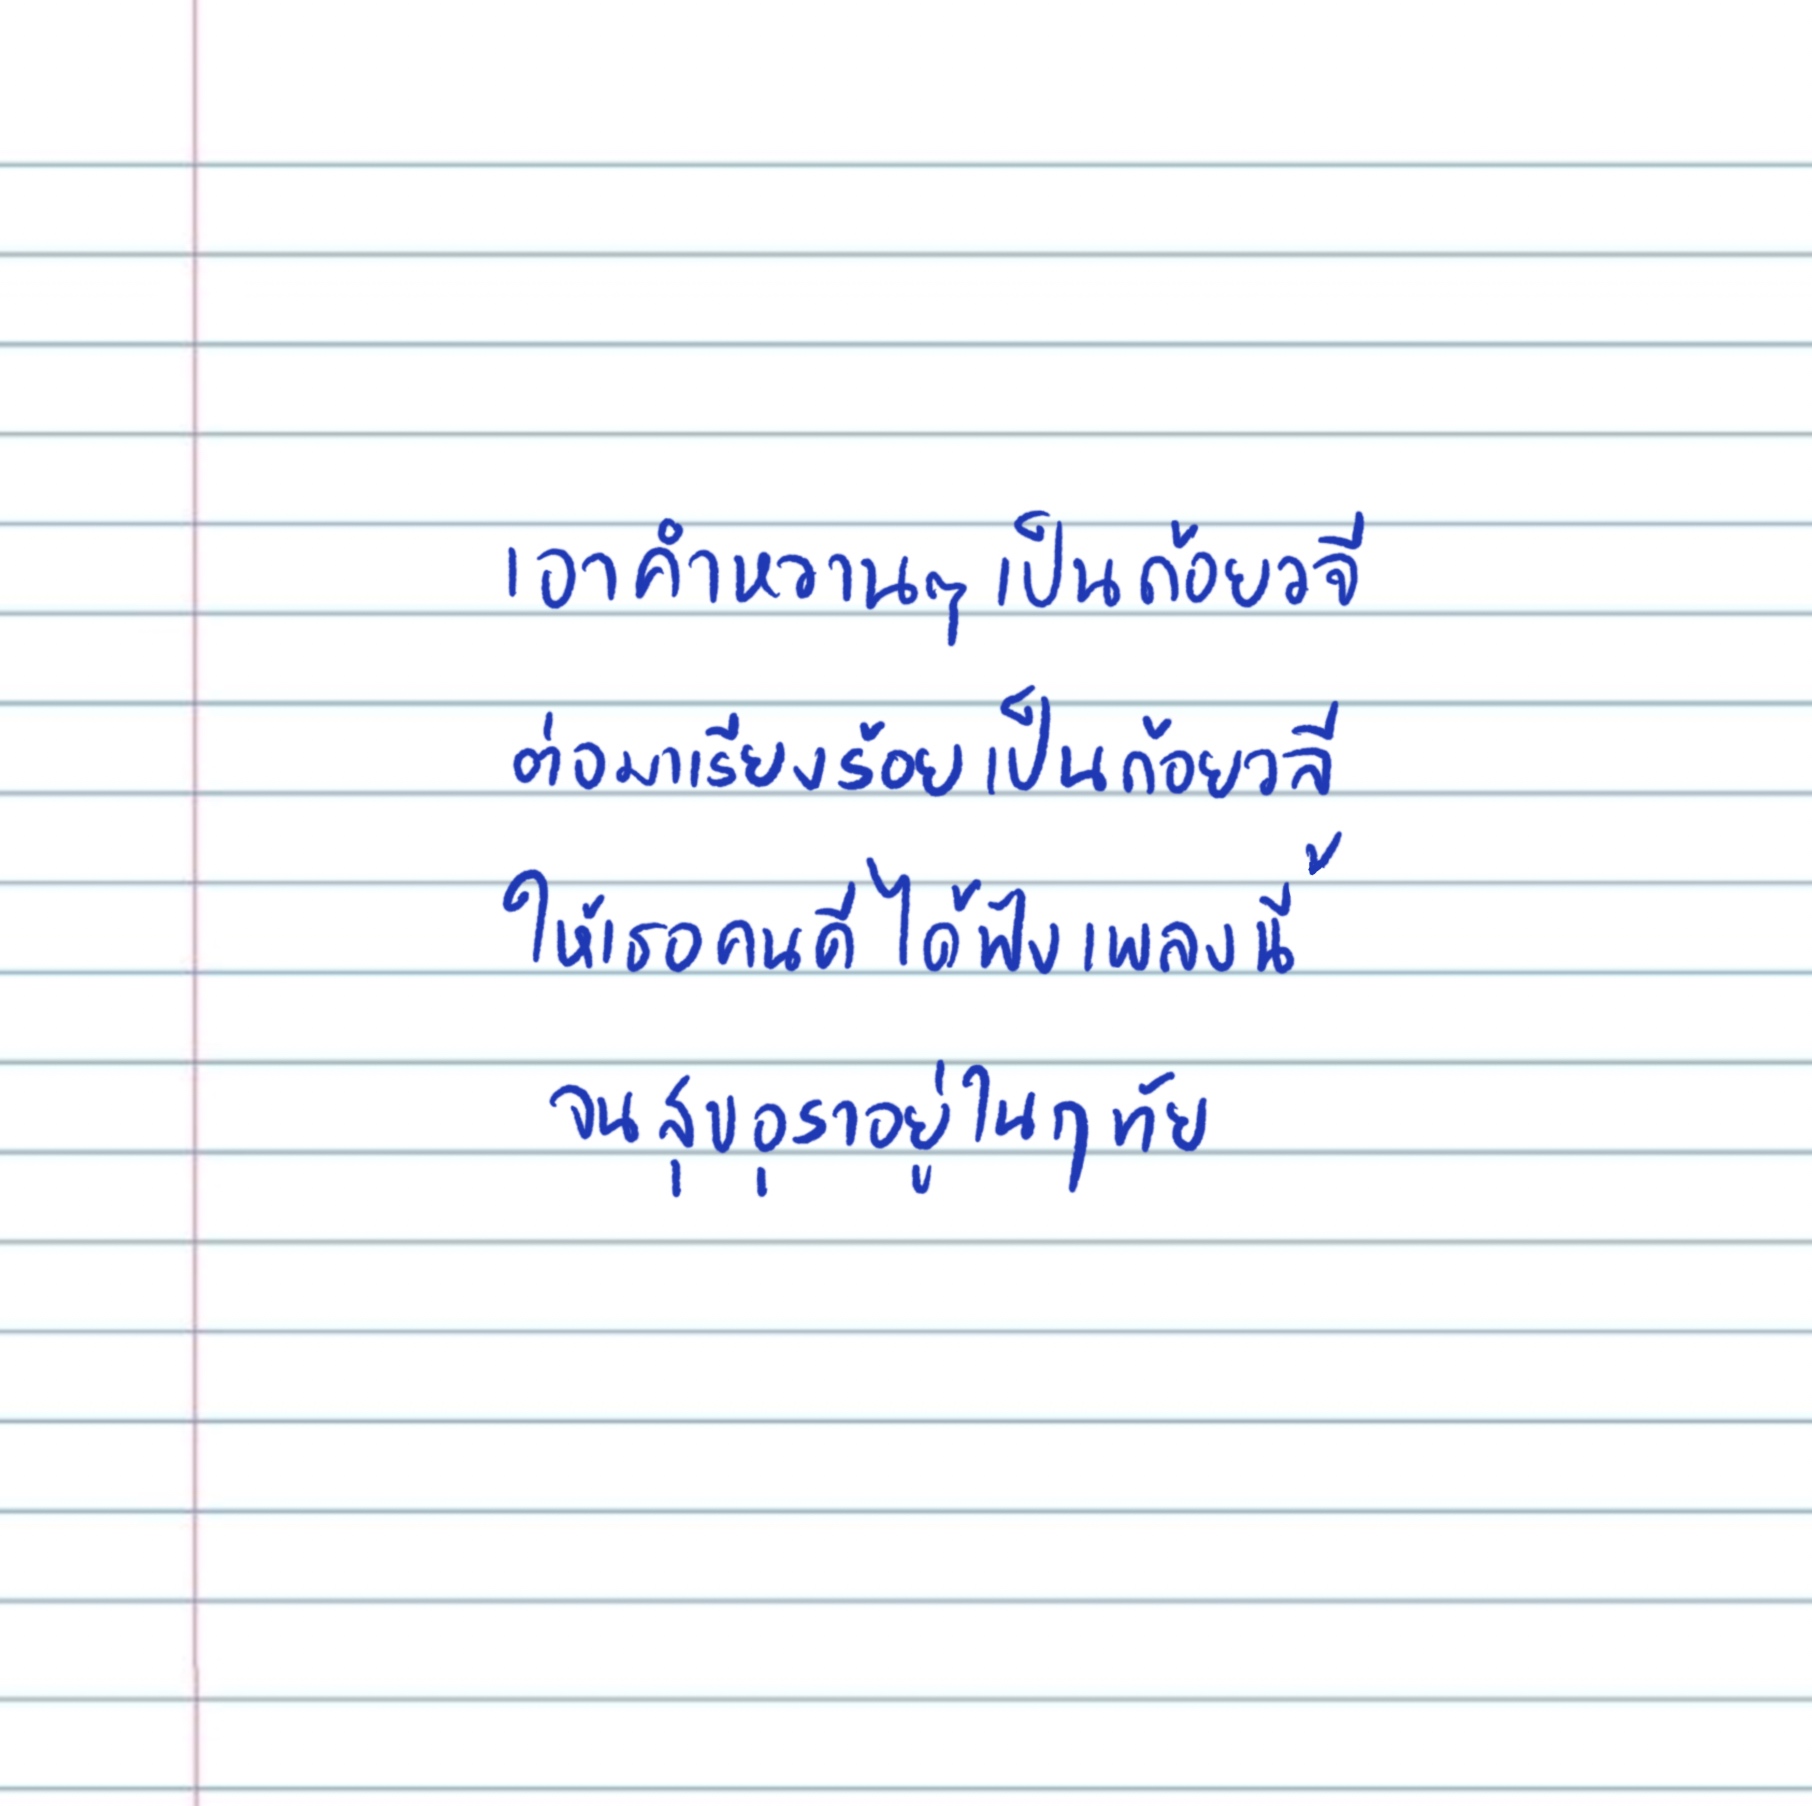 เอาคำหวานๆ เป็นถ้อยวจี
ต่อมาเรียงร้อย เป็นถ้อยวลี
ให้เธอคนดี ได้ฟังเพลงนี้
จนสุขอุราอยู่ในฤทัย